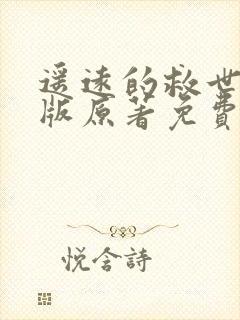 遥远的救世
版原著免費
悦含詩